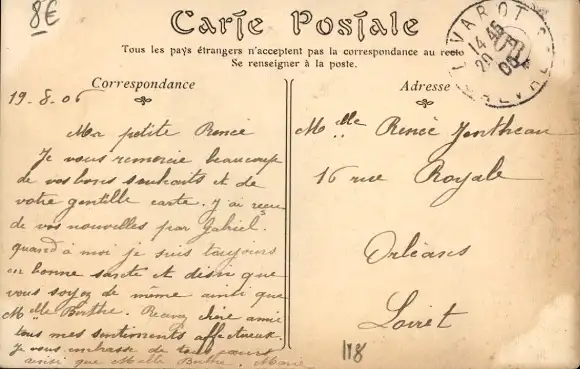 8€
Carte Postale
Tous les pays étrangers n'acceptent pas la correspondance au recto
Se renseigner à la poste.
Correspondance
19-8-06
Ma petite Renée
Je vous remercie beaucoup
de vos bons souhaits et de
votre gentille carte. J'ai reçu
de vos nouvelles par Gabriel.
quand à moi je suis toujours
en bonne santé et désire que
vous soyez de même ainsi que
Mlle Berthe. Recevez chère amie
tous mes sentiments affectueux.
Je vous embrasse de tout cœur
ainsi que Mlle Berthe. Marie
LIVAROT
14 45
20
06
CALVADOS
Adresse
Mlle Renée
16 rue Royale
Orléans
Loiret
118